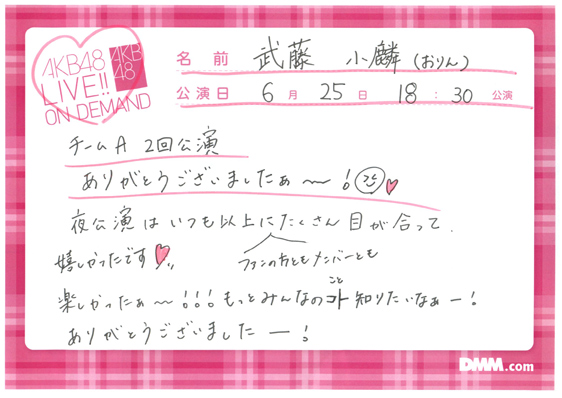 AKB48
LIVE!!
ON DEMAND
AKB
48
名前 武藤 小麟(おりん)
公演日 6月25日 18:30 公演
チームA 2回公演
ありがとうございましたぁ〜!
夜公演はいつも以上にたくさん目が合って、
嬉しかったです
ファンの方ともメンバーとも
楽しかったぁ〜!!!もっとみんなのコト知りたいなぁー!
こと
ありがとうございましたー!
DMM.com